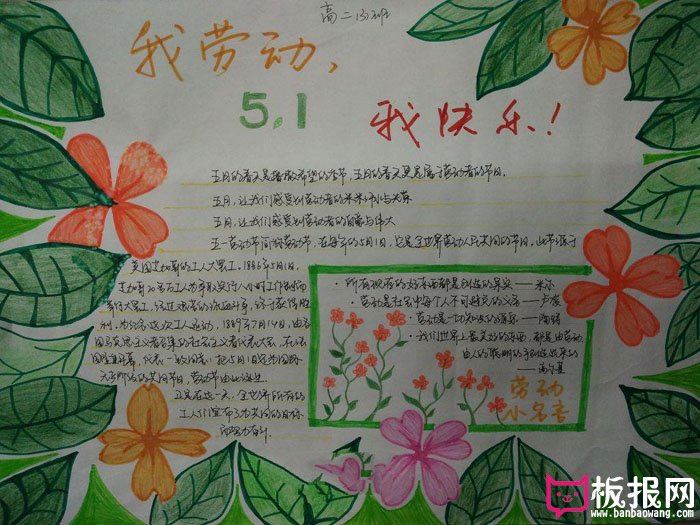 高二(3)班
我劳动,
5.1
我快乐!
五月的春天是播散希望的季节,五月的春天更是属于劳动者的节日。
五月,让我们感受到劳动者的
五月,让我们感受到劳动者的自豪与伟大
五一劳动节同称劳动节,在每年的5月1日,它是全世界劳动人民共同的节日,此节源于
美国芝加哥的工人大罢工。1886年5月1日,
芝加哥20多万工人为争取实行八小时工作制而
举行大罢工,经过艰苦的流血斗争,终于获得胜
利,为纪念这次工人运动,1889年7月14日,由各
国马克思主义者召集的社会主义者代表大会,在法
国隆重开幕,代表一致同意:把5月1日定为国际
无产阶级的共同节日,劳动节由此诞生
正是在这一天,全世界所有的
工人们宣布为共同的目标
而努力奋斗。
· 所有现存的好东西都是创造的果实——米尔
· 劳动是社会中每个人不可避免的义务——卢梭
· 劳动是一切知识的源泉——陶铸
· 我们世界上最美好的东西,都是由劳动、
由人的聪明的手创造出来的
——高尔基
劳动
小名言
板报网
www.banbaowang.com